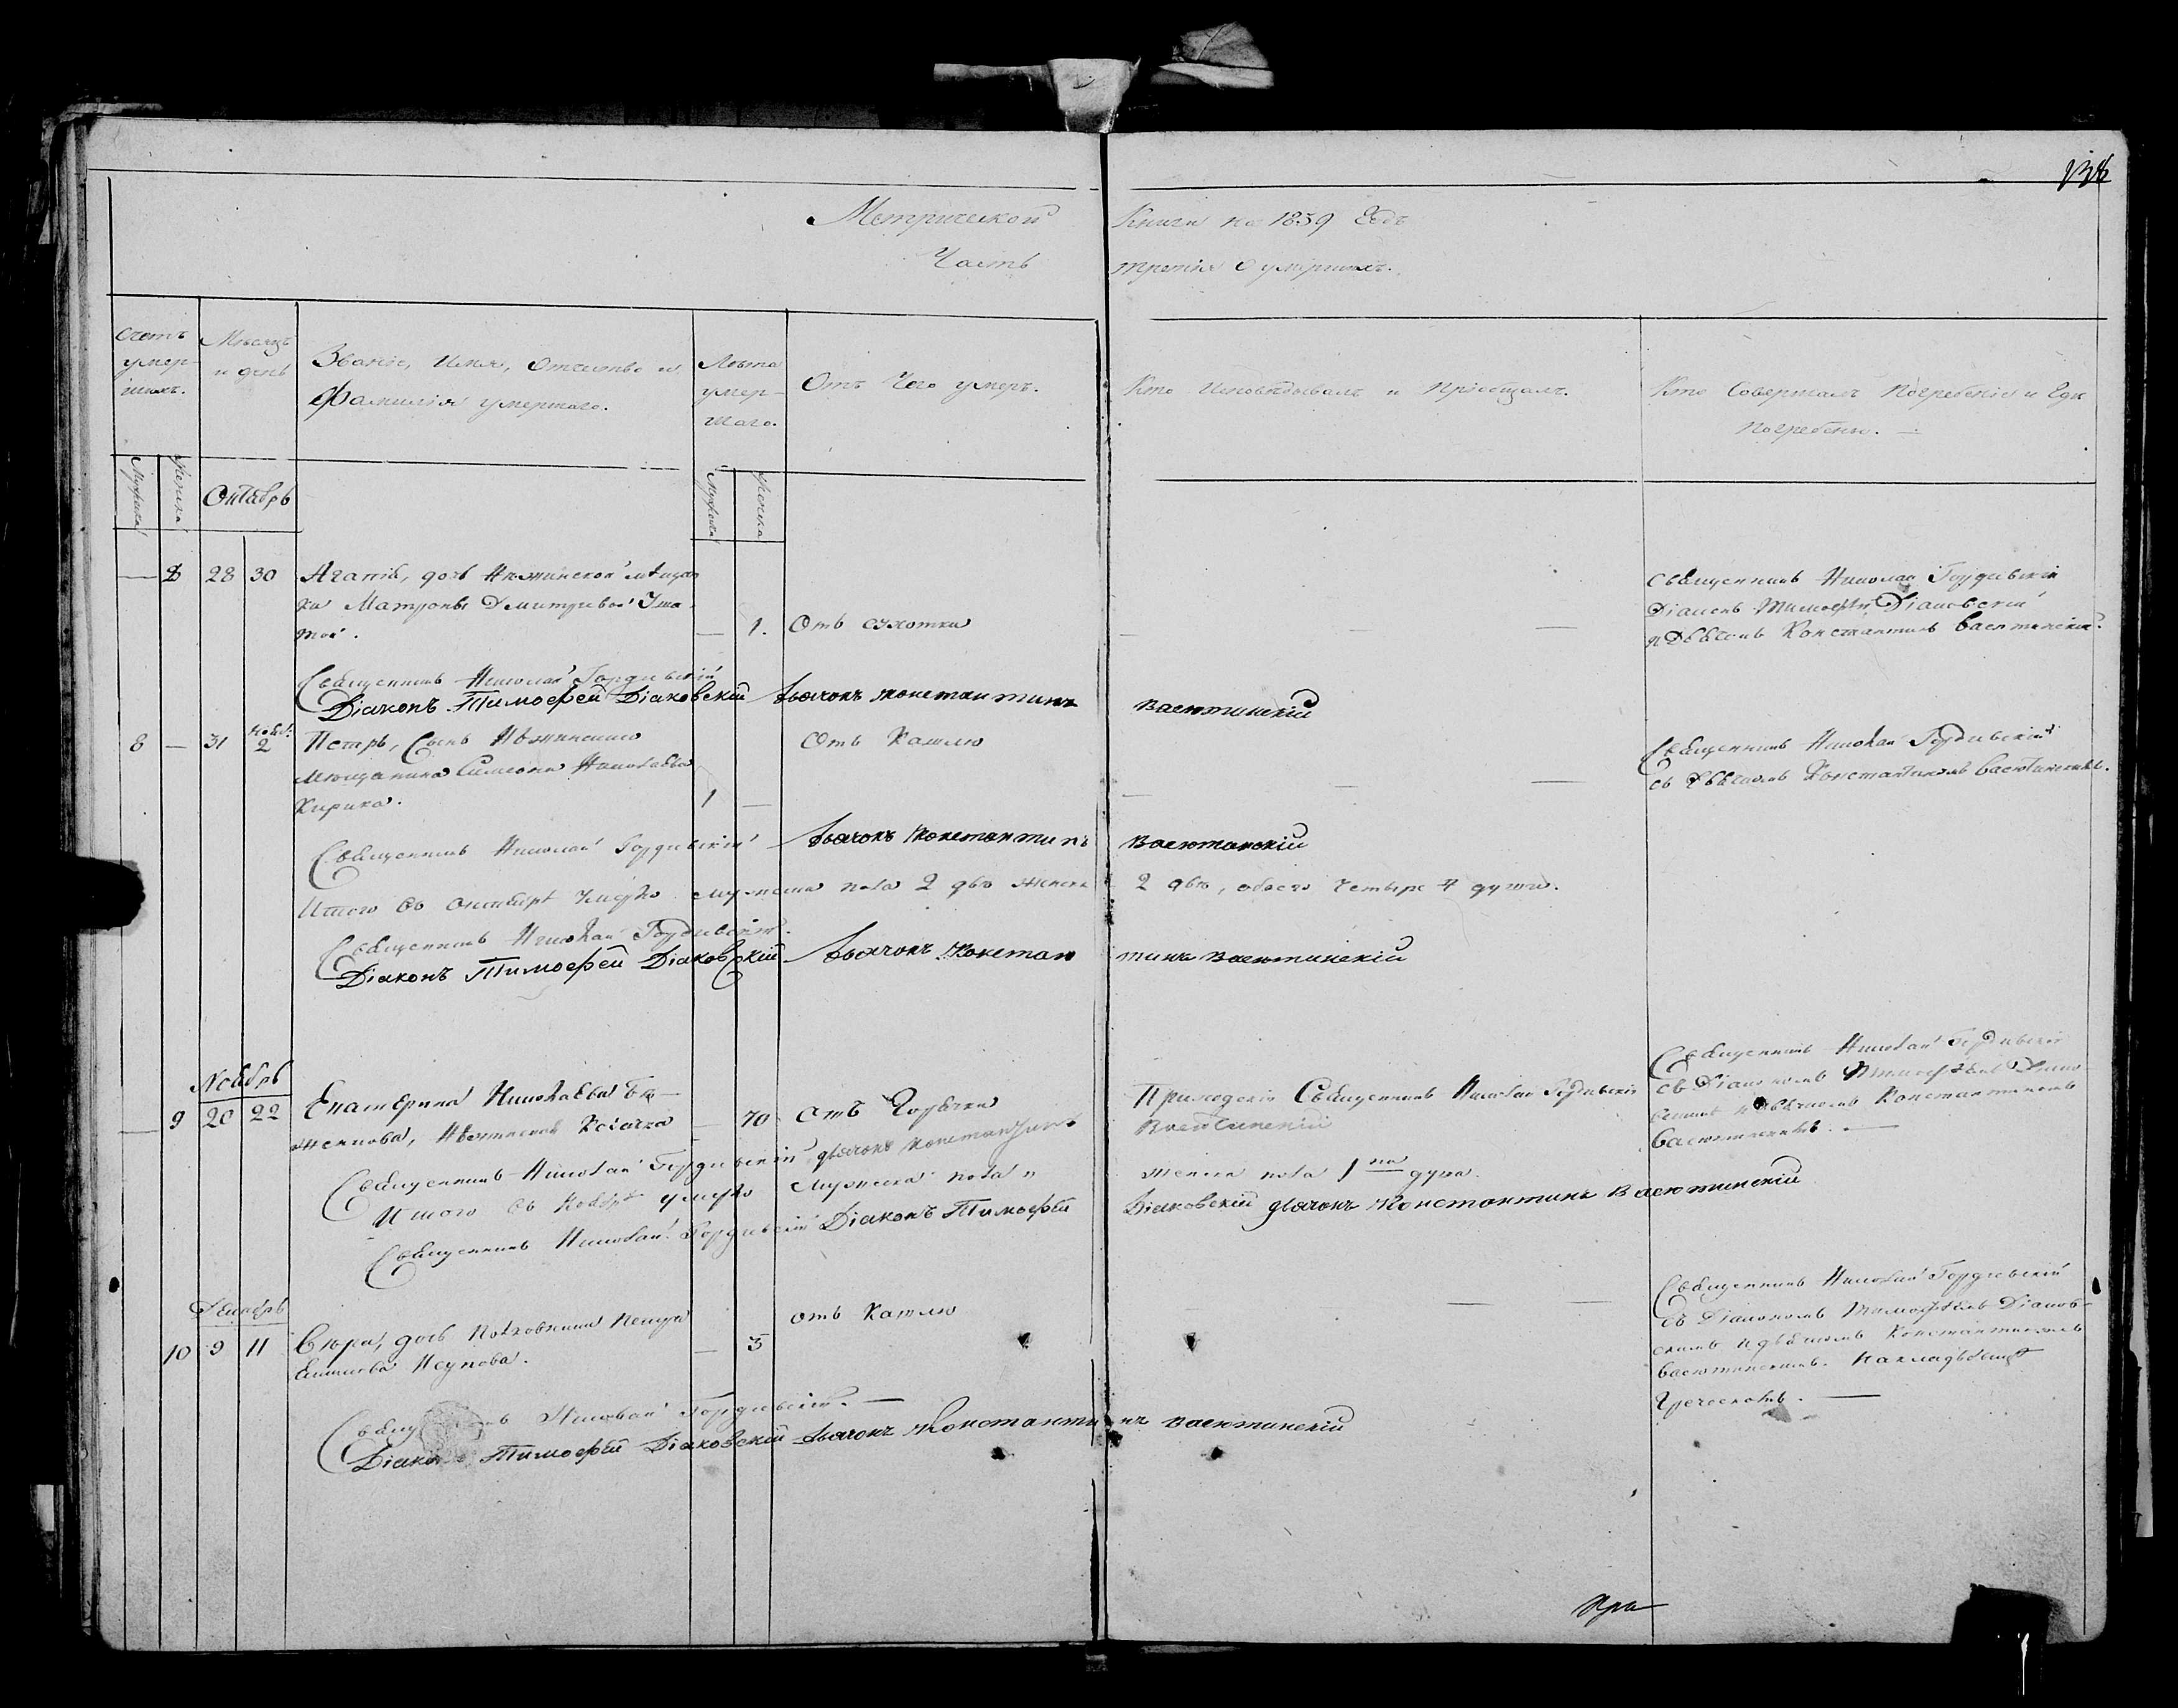 138
Метрической Книги на 1839 Годъ
Часть третія О умершихъ.
Счетъ умер-шихъ.
Мѣсяцъ и день
Званіе, Имя, Отчество и
Фамилія умершаго.
Лѣта умер-шаго.
Отъ Чего умеръ.
Кто Исповѣдывалъ и Пріобщалъ.
Кто Совершалъ Погребеніе и Гдѣ
Погребены.
Мужеска Женска
Октябрь
Мужеска Женска
— 8 28 30 Агапія, дочь Нѣжинской мѣщан
ки Матроны Дмитріевой
той.
— 1. Отъ сухотки
Священникъ Николай Гордіевскій
Діаконъ Тимофей Діаковскій
и Дьячокъ Константинъ Васютинскій.
Священникъ Николай Гордіевскій
Діаконъ Тимофей Діаковскій Дьячокъ Константинъ Васютинскій
8 — 31 Нояб: 2 Петръ, Сынъ Нѣжинскаго
мѣщанина Симеона Николаева
Кирика.
1 — Отъ Кашлю
Священникъ Николай Гордіевскій
съ Дьячкомъ Константиномъ Васютинскимъ.
Священникъ Николай Гордіевскій Дьячокъ Константинъ Васютинскій
Итого въ Октябрѣ умерло мужеска пола 2 два женска 2 двѣ, обоего четыре 4 души.
Священникъ Николай Гордіевскій.
Діаконъ Тимофей Діаковскій Дьячокъ Константинъ Васютинскій
Ноябрь
— 9 20 22 Екатерина Николаева Бо-
женцова, Нѣжинская Козачка
— 70 отъ Горячки
Приходскій Священникъ Николай Гордіевскій
Священникъ Николай Гордіевскій
съ Діакономъ Тимофѣемъ Діако-
вскимъ и дьячкомъ Константиномъ
Васютинскимъ. —
Священникъ Николай Гордіевскій дьячокъ Константинъ Васютинскій
Итого въ Ноябрѣ умерло мужеска пола " женска пола 1 на душа.
Священникъ Николай Гордіевскій Діаконъ Тимофей Діаковскій дьячокъ Константинъ Васютинскій
Декабрь
10 9 11 дочь Полковника Петра
— 3 отъ Кашлю
Священникъ Николай Гордіевскій
съ Діакономъ Тимофѣемъ Діаков-
скимъ и дьячкомъ Константиномъ
Васютинскимъ. На кладбищѣ
Греческомъ. —
Священникъ Николай Гордіевскій. —
Діаконъ Тимофей Діаковскій Дьячокъ Константинъ Васютинскій